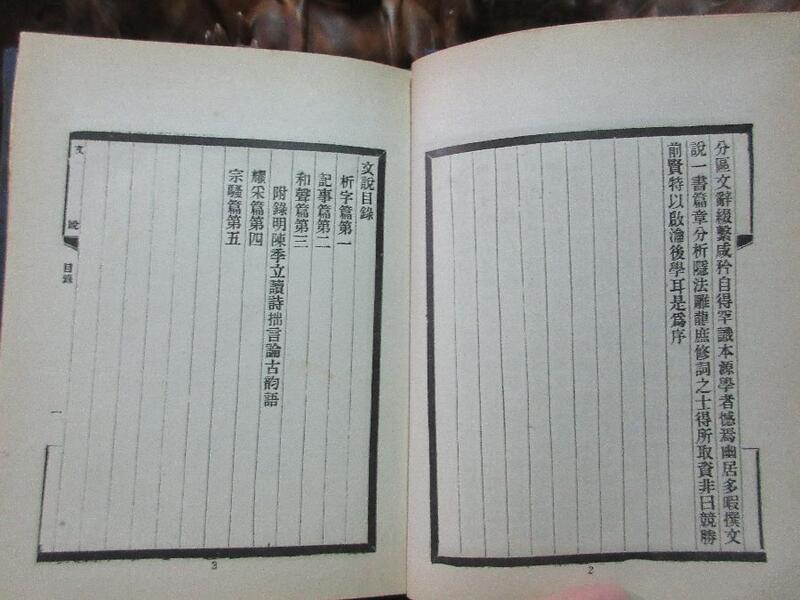 分區文辭綴繫咸矜自得罕識本源學者憾焉幽居多暇撰文
說一書篇章分析隱法雕龍庶修詞之士得所取資非曰競勝
前賢特以啟瀹後學耳是爲序
2
文說目錄
析字篇第一
記事篇第二
和聲篇第三
附錄明陳季立讀詩拙言論古韵語
耀采篇第四
宗騷篇第五
文說
目錄
一
3